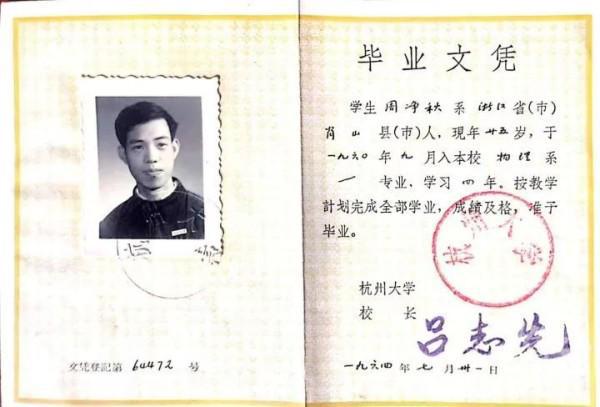 文凭登记第 64472 号
毕业文凭
学生周净秋系浙江省(市)
肖山县(市)人,现年廿五岁,于
一九六〇年九月入本校物理系
一专业,学习四年。按教学
計划完成全部学业,成绩及格,准予
毕业。
杭州大学
杭州大学
校长 吕志先
一九六四年七月卅一日